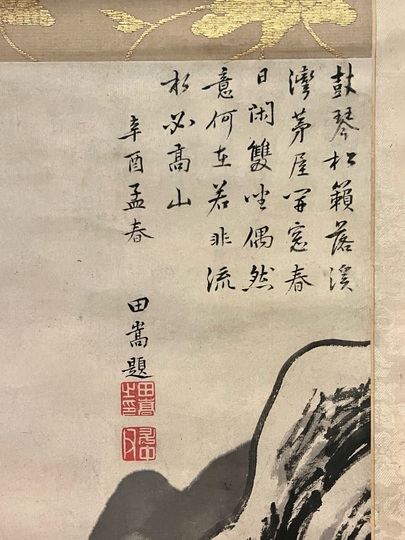 鼓琴松籟落溪
灣茅屋開窓春
日閑雙坐偶然
意何在若非流
水必高山
辛酉孟春
田嵩題
田嵩之印